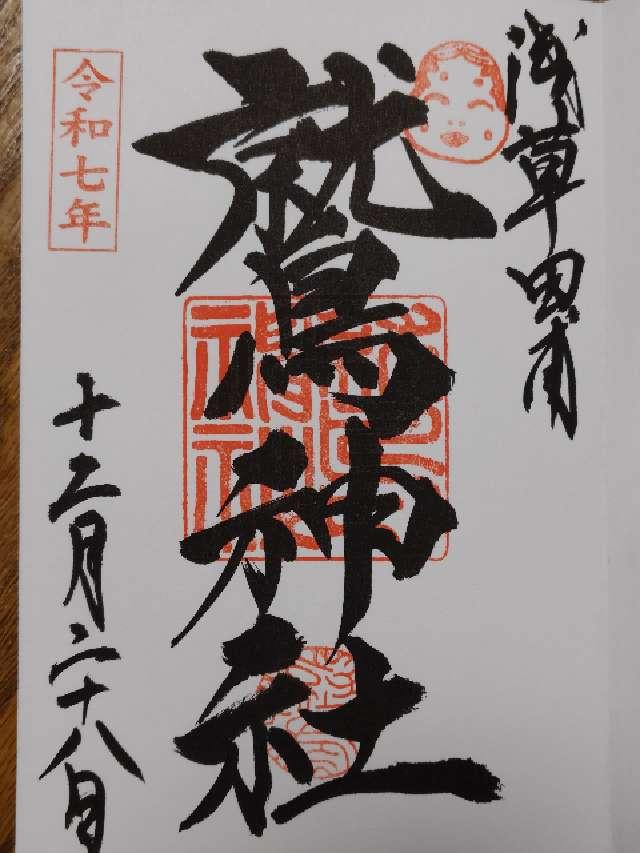 浅草田甫
鷲神社
令和七年
十二月二十八日